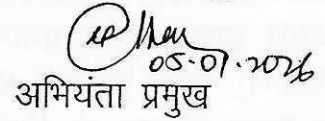 05.01.2026
अभियंता प्रमुख